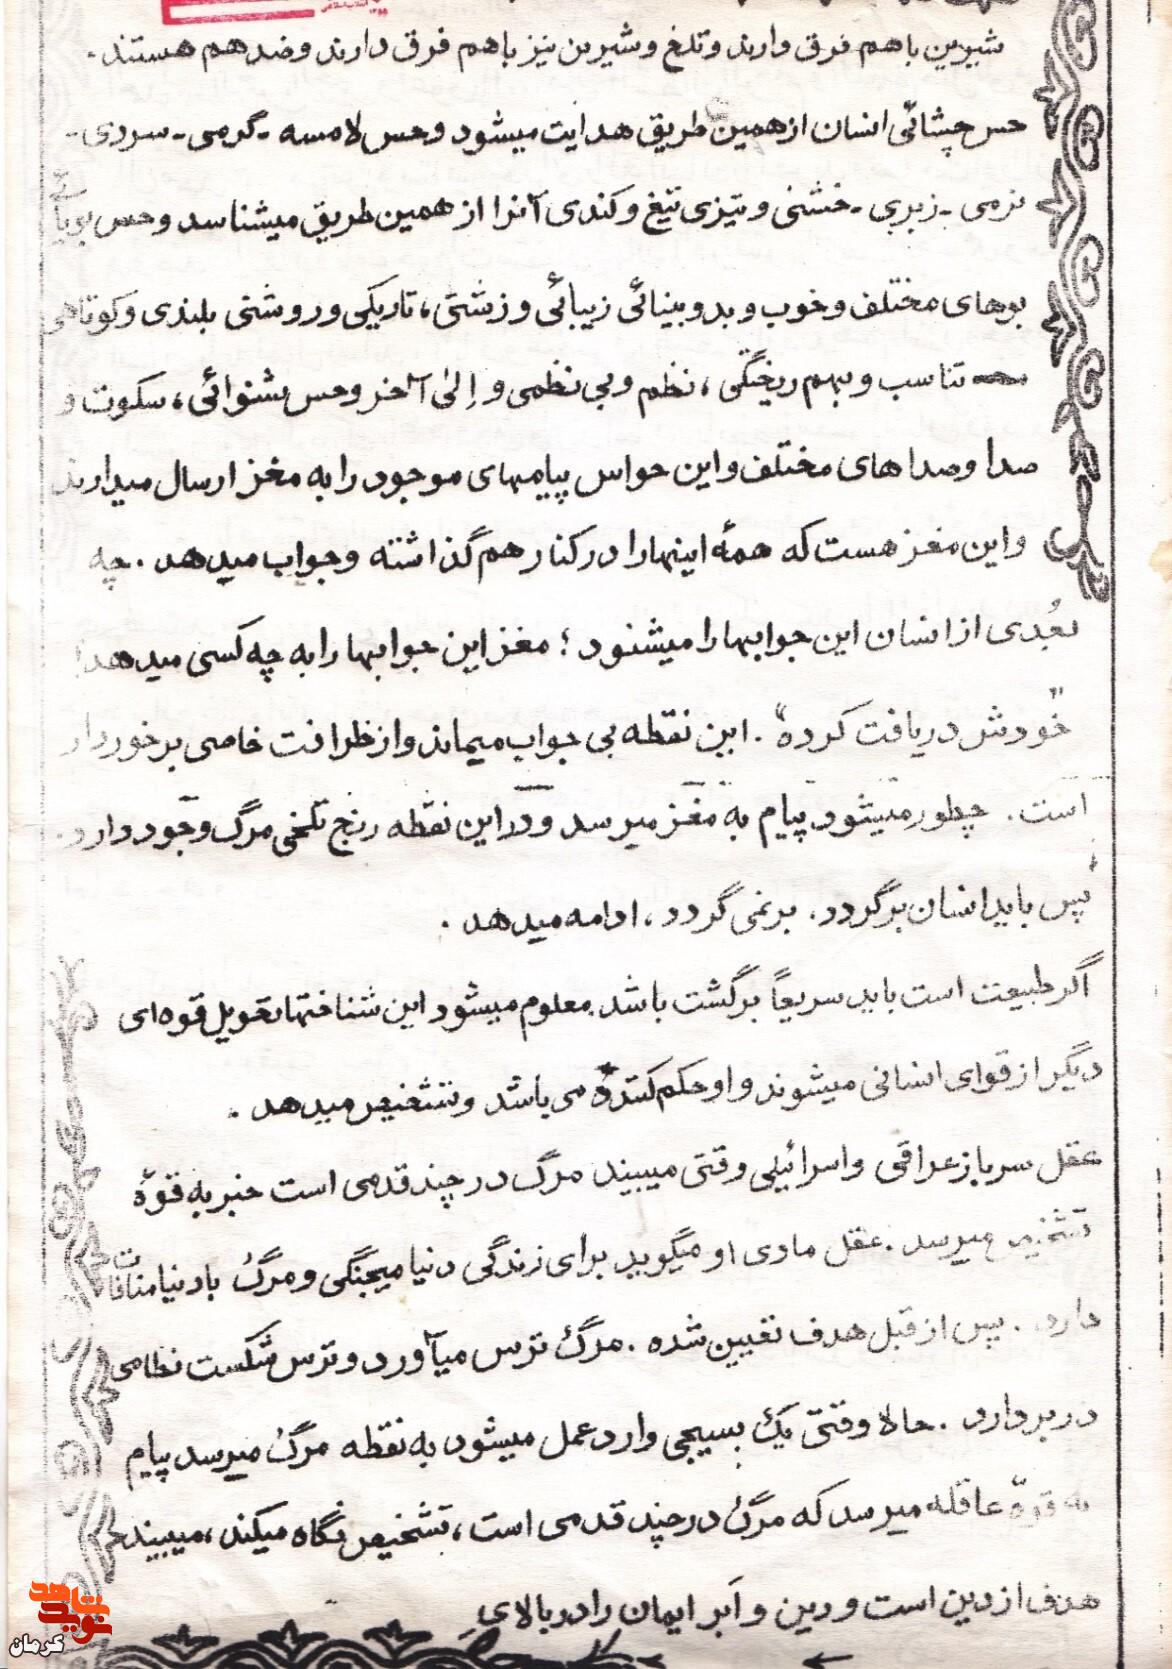 شیرین باهم فرق دارند و تلخ و شیرین نیز باهم فرق دارند و ضد هم هستند.
حس چشائی انسان از همین طریق هدایت میشود و حس لامسه - گرمی - سردی -
نرمی - زبری - خشنی و تیزی تیغ و کندی آنرا از همین طریق میشناسد و حس بویائی
بوهای مختلف و خوب و بد و بینائی زیبائی و زشتی، تاریکی و روشنی بلندی و کوتاهی
تناسب و بهم ریختگی، نظم و بی نظمی و اِلیٰ آخر و حس شنوائی، سکوت و
صدا و صداهای مختلف و این حواس پیامهای موجود را به مغز ارسال میدارند
و این مغز هست که همهٔ اینها را در کنار هم گذاشته و جواب میدهد. چه
بُعدی از انسان این جوابها را میشنود؛ مغز این جوابها را به چه کسی میدهد؟
"خودش دریافت کرده". این نقطه بی جواب میماند و از ظرافت خاصی برخوردار
است. چطور میشود پیام به مغز میرسد و در این نقطه رنج تلخی مرگ وجود دارد.
پس باید انسان برگردد. برنمی گردد، ادامه میدهد.
اگر طبیعت است باید سریعاً برگشت باشد. معلوم میشود این شناختها تحویل قوه ای
دیگر از قوای انسانی میشوند و او حکم کننده می باشد و تشخیص میدهد.
عقل سرباز عراقی و اسرائیلی وقتی میبیند مرگ در چند قدمی است خبر به قوّه
تشخیص میرسد. عقل مادی او میگوید برای زندگی دنیا میجنگی و مرگ با دنیا منافات
دارد. پس از قبل هدف تعیین شده. مرگ ترس میآورد و ترس شکست نظامی
در بر دارد. حالا وقتی یک بسیجی وارد عمل میشود به نقطه مرگ میرسد پیام
به قوّه عاقله میرسد که مرگ در چند قدمی است، تشخیص نگاه میکند، میبیند
هدف از دین است و دین و اَبر ایمان را در بالای
نوید شاهد
کرمان